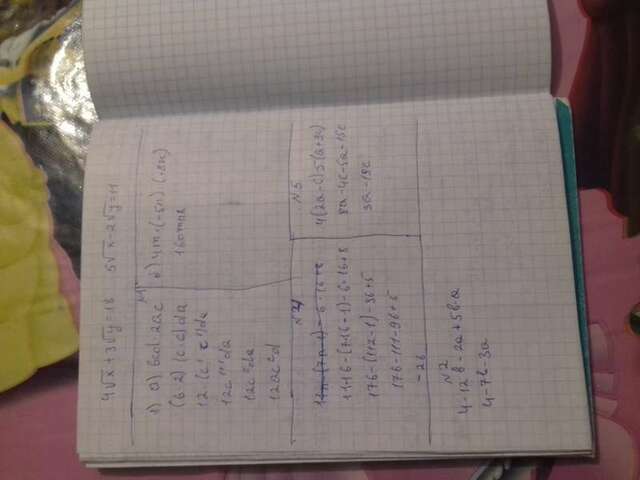 4√x + 3√y = 18 5√x - 2√y = 11
№1
1) а) 6cd · 2ac
(6·2) (c·c) da
12 · (c¹ c¹) da
12c¹⁺¹ da
12c² da
12ac²d
б) 4m · (-5n) · (-8k)
160mnk
№4
11n - (7n-1) - 6 · 16 + 8
11·16 - (7·16 - 1) - 6 · 16 + 8
176 - (112 - 1) - 96 + 5
176 - 111 - 96 + 5
-26
№5
4(2a - c) 5(a + 3c)
8a - 4c - 5a - 15c
3a - 19c
№2
4 - 12b - 2a + 5b - a
4 - 7b - 3a